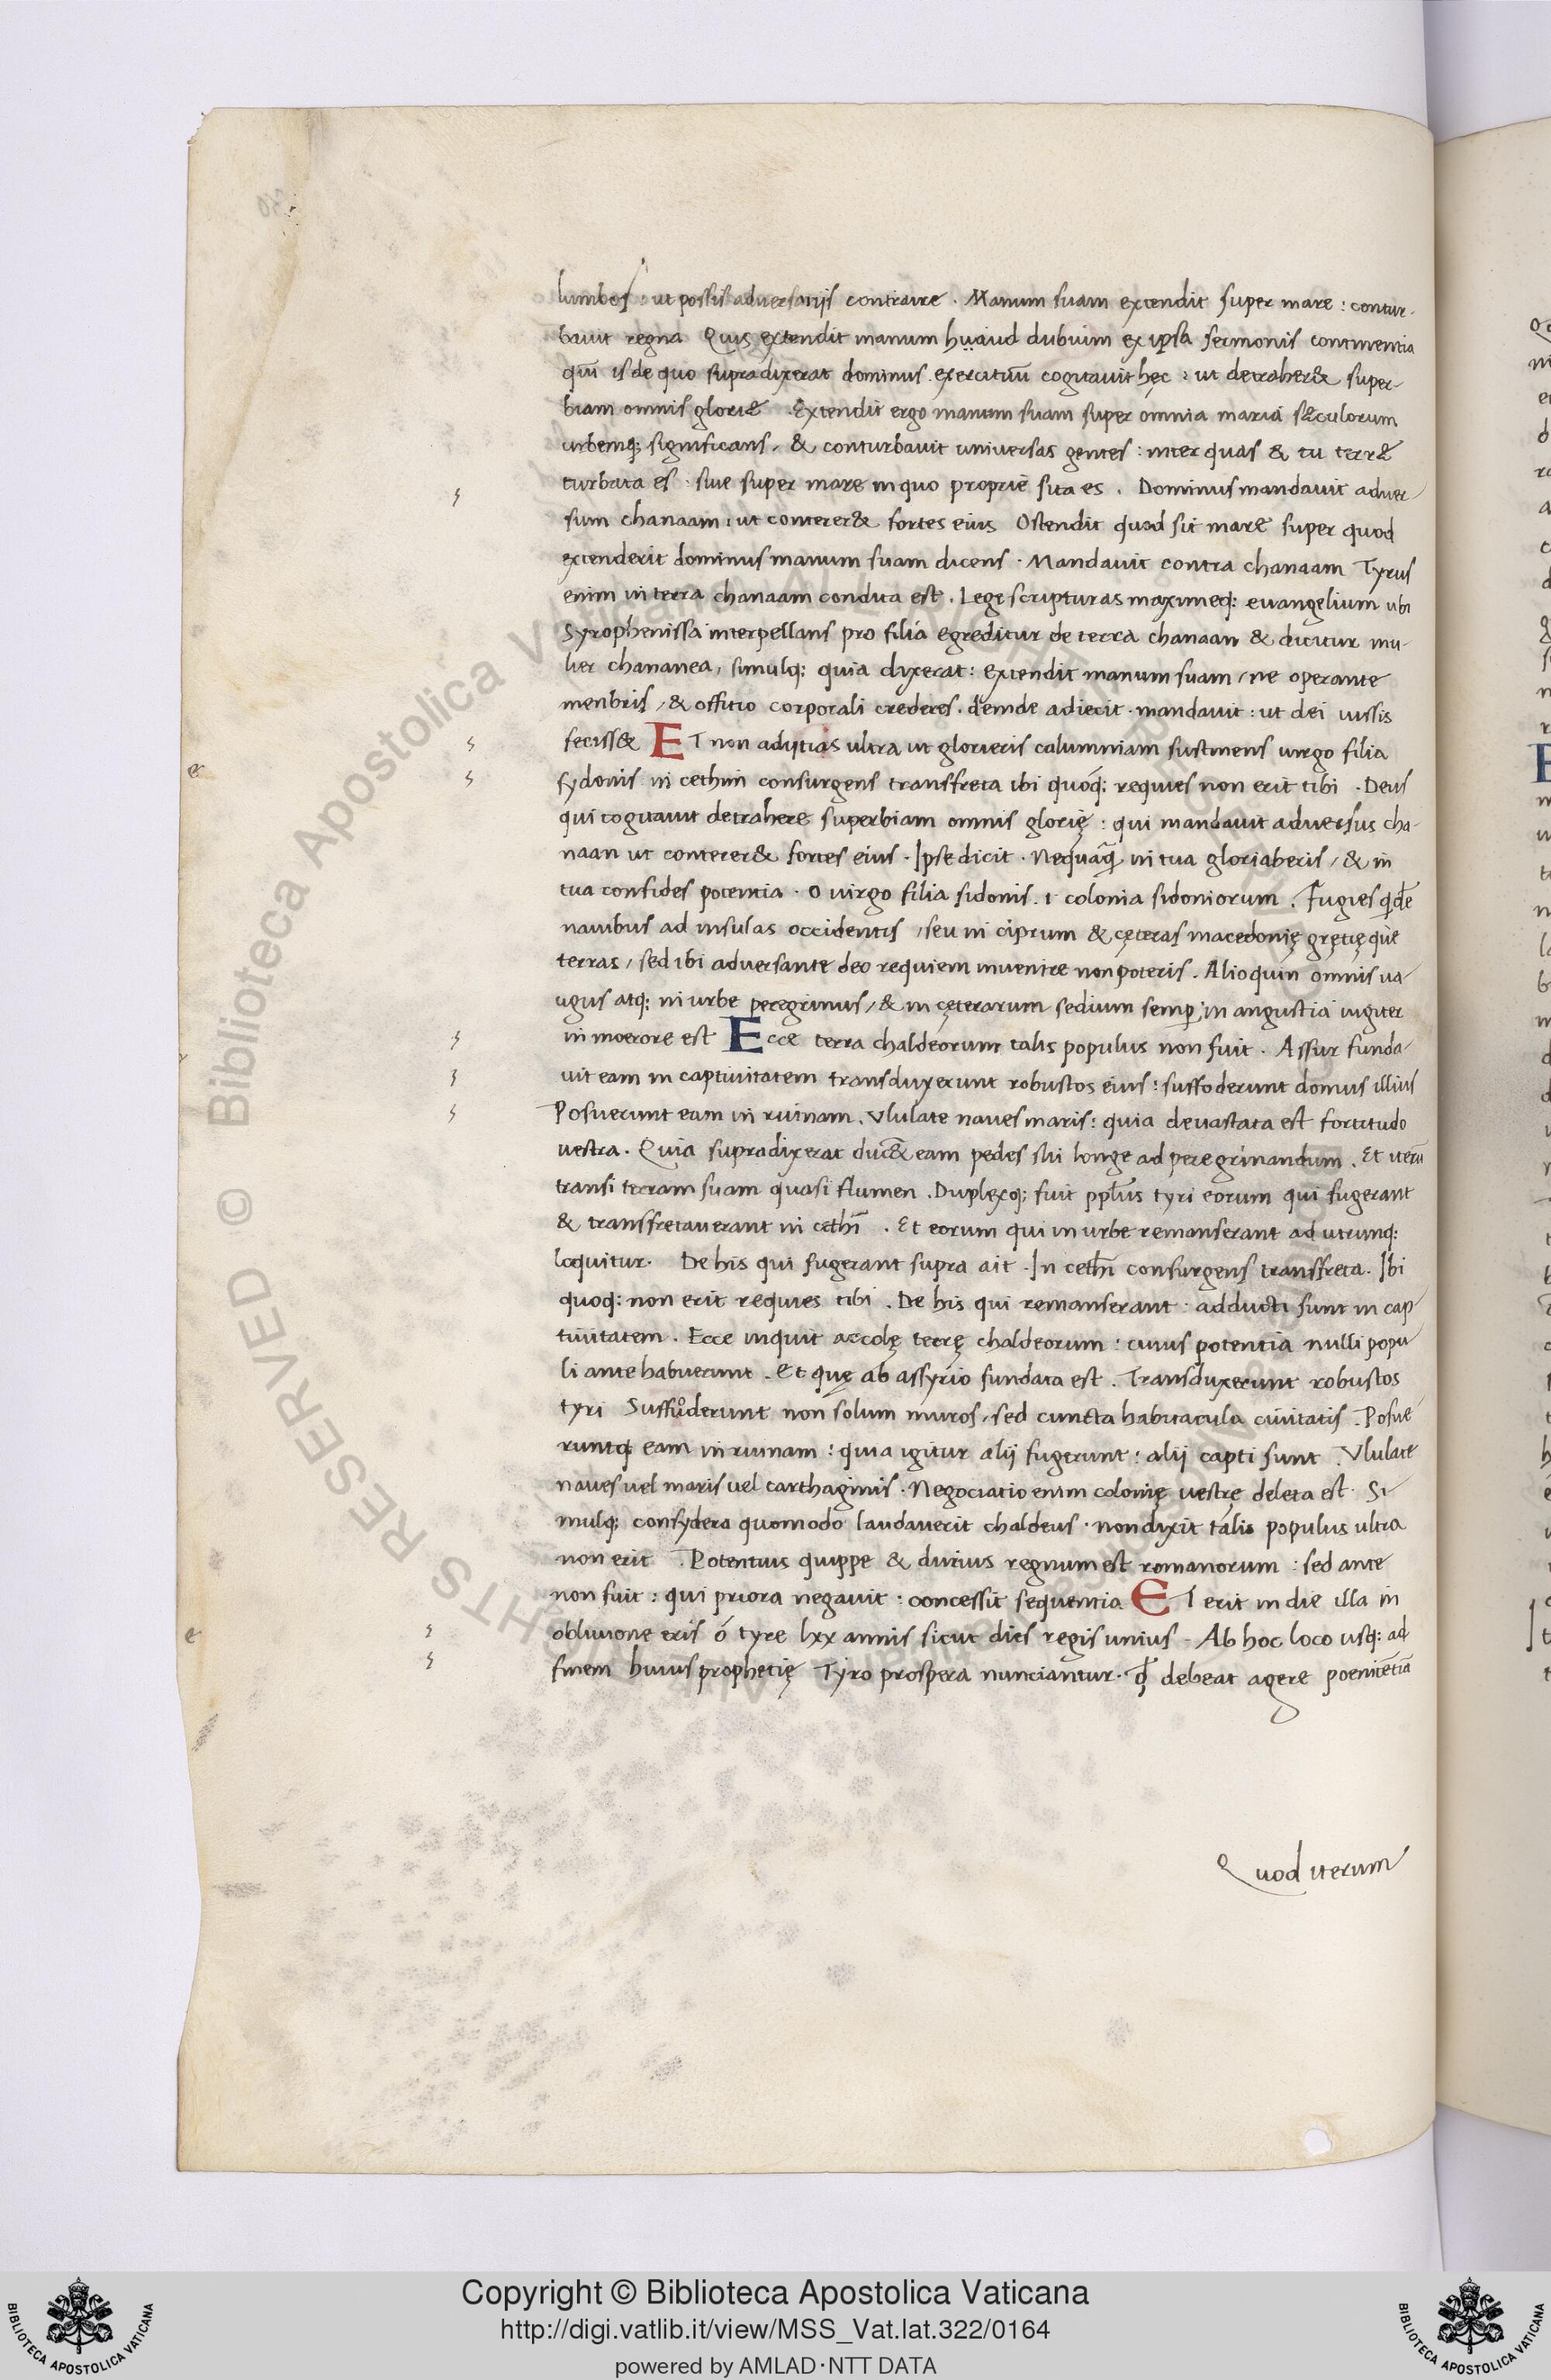 lumbos : ut possis adversariis contraire . Manum suam extendit super mare : contur-
bavit regna Quis extendit manum huaiud dubuim ex ipsa sermonis continentia
qm̄ is de quo supra dixerat dominus exercituū cogitavit hęc : ut detraher& super-
biam omnis gloriæ . Extendit ergo manum suam super omnia maria sæculorum
urbemq; significans / & conturbavit universas gentes : inter quas & tu terræ
turbata es : sive super mare in quo proprie sita es . Dominus mandavit adver-
sum chanaam : ut conterer& fortes eius Ostendit quod sit mare super quod
extenderit dominus manum suam dicens . Mandavit contra chanaam Tyrus
enim in terra chanaam condita est . Lege scripturas maximeq; evangelium ubi
Syrophenissa interpellans pro filia egreditur de terra chanaan & dicitur mu-
lier chananea / simulq; quia dixerat : extendit manum suam / ne operante
menbris / & offitio corporali crederes . deinde adiecit . mandavit : ut dei iussis
feciss& ET non adiitias ultra ut glorieris calumniam sustinens virgo filia
sydonis in cethim consurgens transfreta ibi quoq; requies non erit tibi . Deus
qui cogitavit detrahere superbiam omnis glorię : qui mandavit adversus cha-
naan ut conterer& fortes eius . Ipse dicit . Nequaq̄ in tua gloriaberis / & in
tua confides potentia . o virgo filia sidonis . i colonia sidoniorum . Fugies qdē
navibus ad insulas occidentis / seu in ciprum & cęteras macedonię gręcięque
terras / sed ibi adversante deo requiem invenire non poteris . Alioquin omnis va-
gus atq; in urbe peregrinus / & in cęterarum sedium semp in angustia iugiter
in moerore est Ecce terra chaldeorum talis populus non fuit . Assur funda-
vit eam in captivitatem transduxerunt robustos eius : suffoderunt domus illius
Posuerunt eam in ruinam . Vlulate naves maris : quia devastata est fortitudo
vestra . Quia supra dixerat duc& eam pedes sui longe ad peregrinandum . Et iterū
transi terram suam quasi flumen . Duplexq; fuit pplus tyri eorum qui fugerant
& transfretaverant in cethī . Et eorum qui in urbe remanserant ad utrunq;
loquitur . De his qui fugerant supra ait . In cethī consurgens transfreta . Ibi
quoq; non erit requies tibi . De his qui remanserant : adducti sunt in cap-
tivitatem . Ecce inquit accolę terrę chaldeorum : cuius potentia nulli popu
li ante habuerunt . Et quę ab assyrio fundata est . Transduxerunt robustos
tyri Suffoderunt non solum muros / sed cuncta habitacula civitatis . Posue
runtq eam in ruinam : quia igitur alij fugerunt : alij capti sunt . Vlulate
naves vel maris vel carthaginis . Negociatio enim colonię vestrę deleta est . Si-
mulq; consydera quomodo laudaverit chaldeus . non dixit talis populus ultra
non erit . Potentius quippe & durius regnum est romanorum : sed ante
non fuit : qui priora negavit : concessit sequentia ET erit in die illa in
oblivione eris ó tyre lxx annis sicut dies regis unius . Ab hoc loco usq; ad
finem huius prophetię Tyro prospera nunciantur . qd debeat agere poenitētiā
Quod iterum
e
e
© Biblioteca Apostolica Vaticana ALL RIGHTS RESERVED
Copyright © Biblioteca Apostolica Vaticana
http://digi.vatlib.it/view/MSS_Vat.lat.322/0164
powered by AMLAD·NTT DATA
BIBLIOTECA APOSTOLICA VATICANA
BIBLIOTECA APOSTOLICA VATICANA